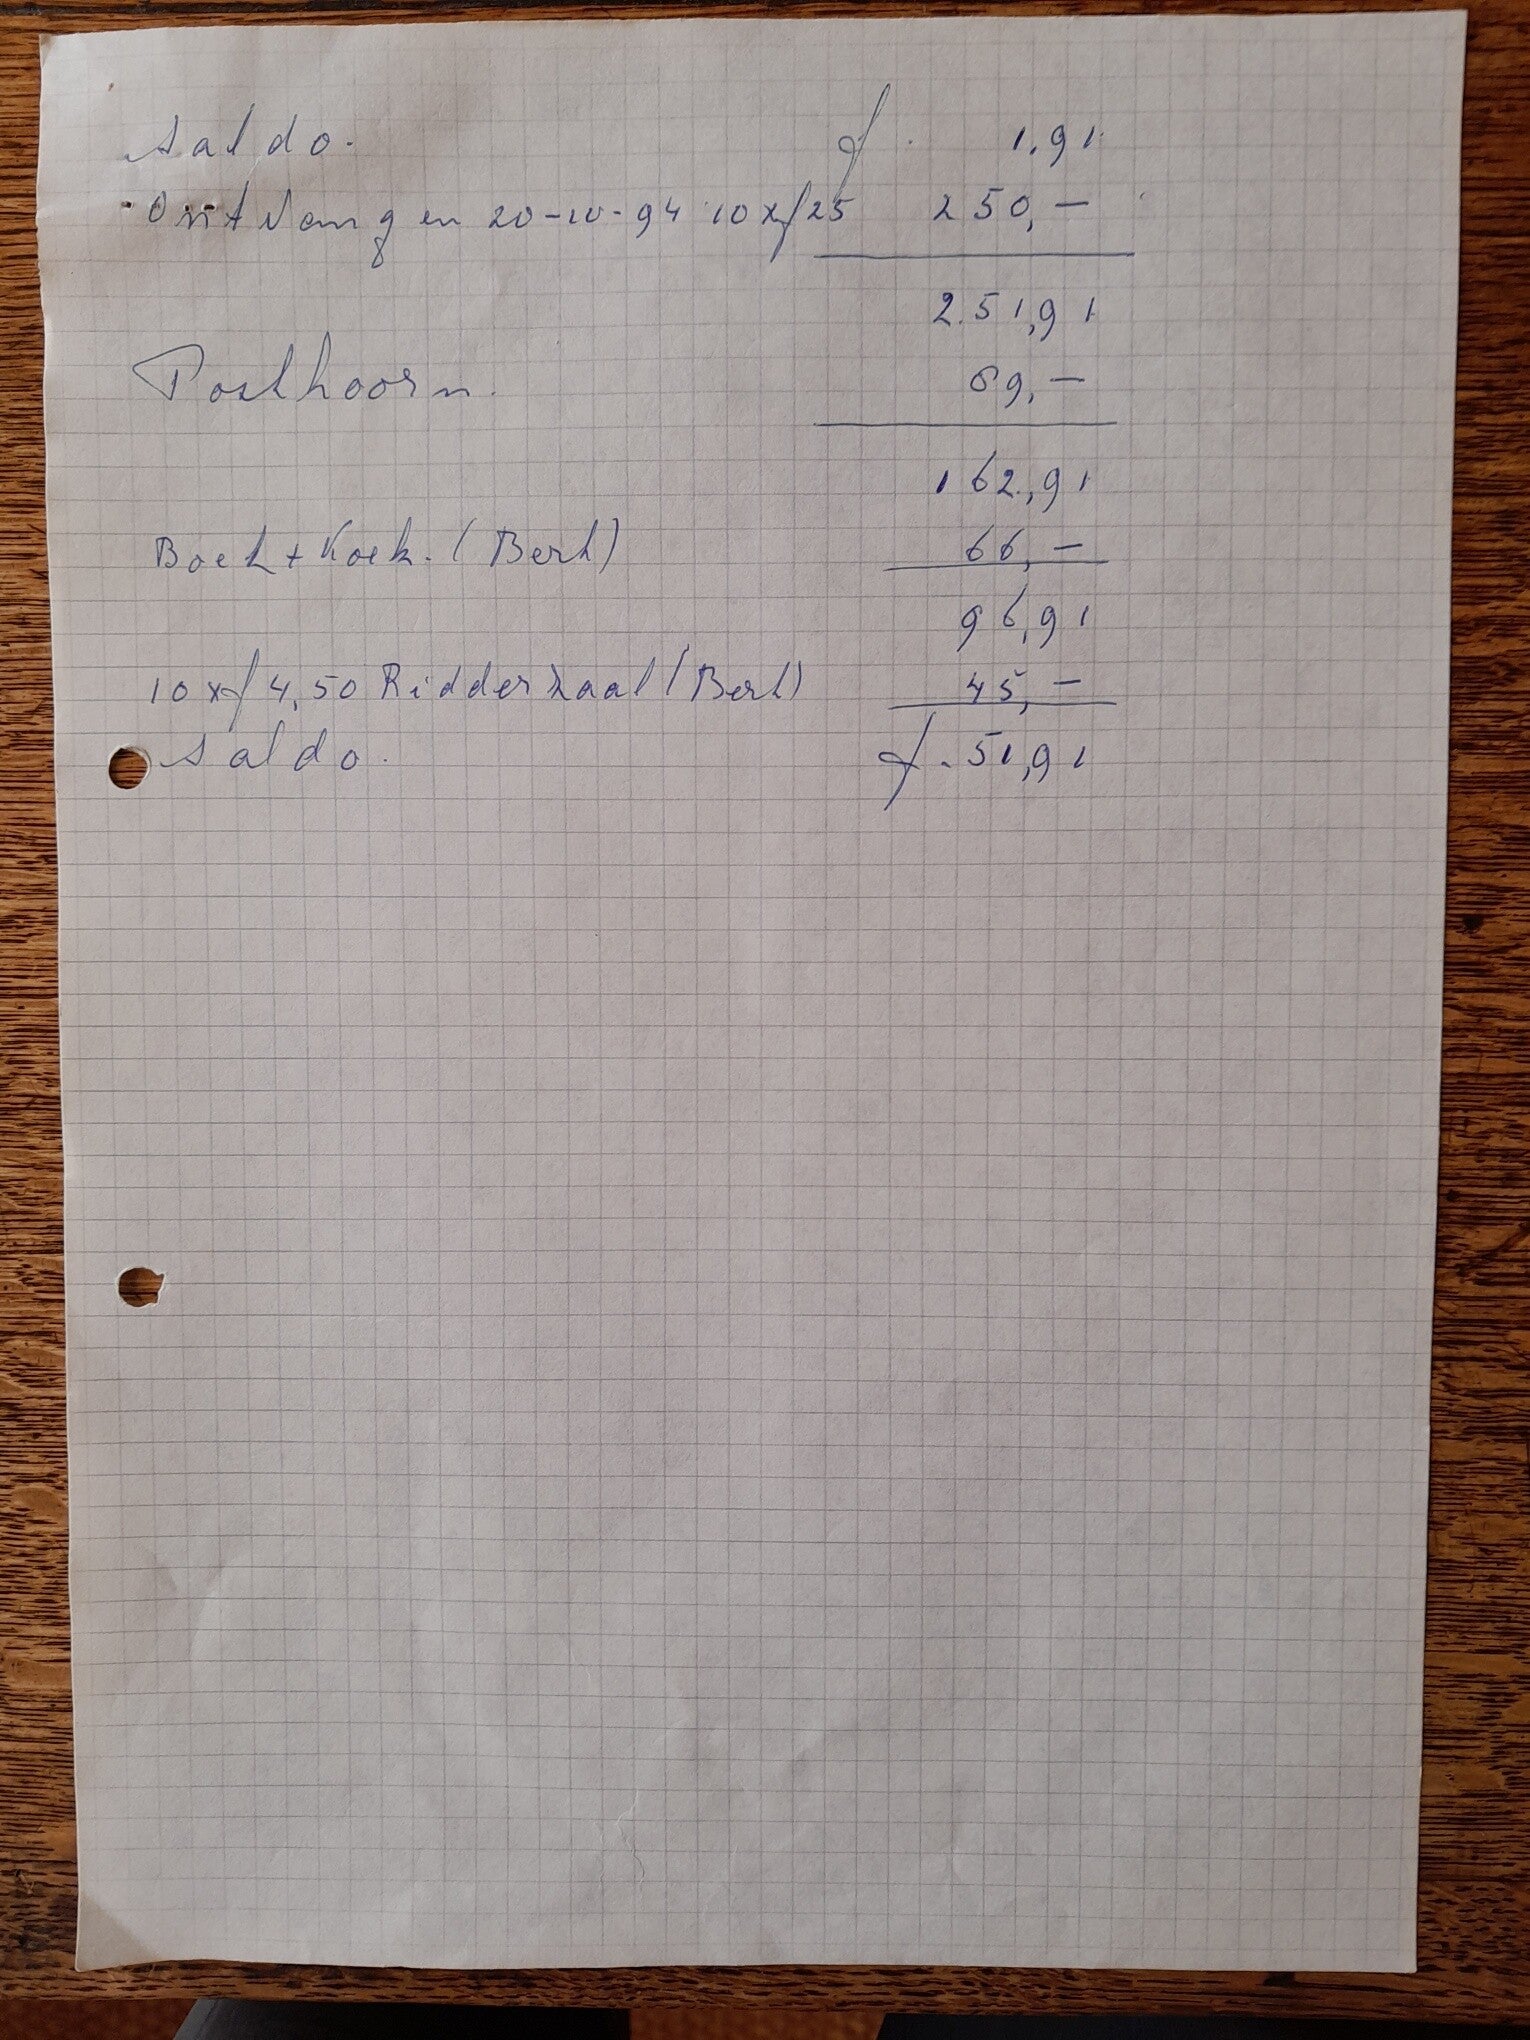 Saldo. f. 1.91
Ontvangen 20-10-94 10xf25 250,—
251,91
Posthoorn. 89,—
162,91
Boek + Koek. (Bert) 66,—
96,91
10xf 4,50 Ridderzaal (Bert) 45,—
Saldo. f. 51,91